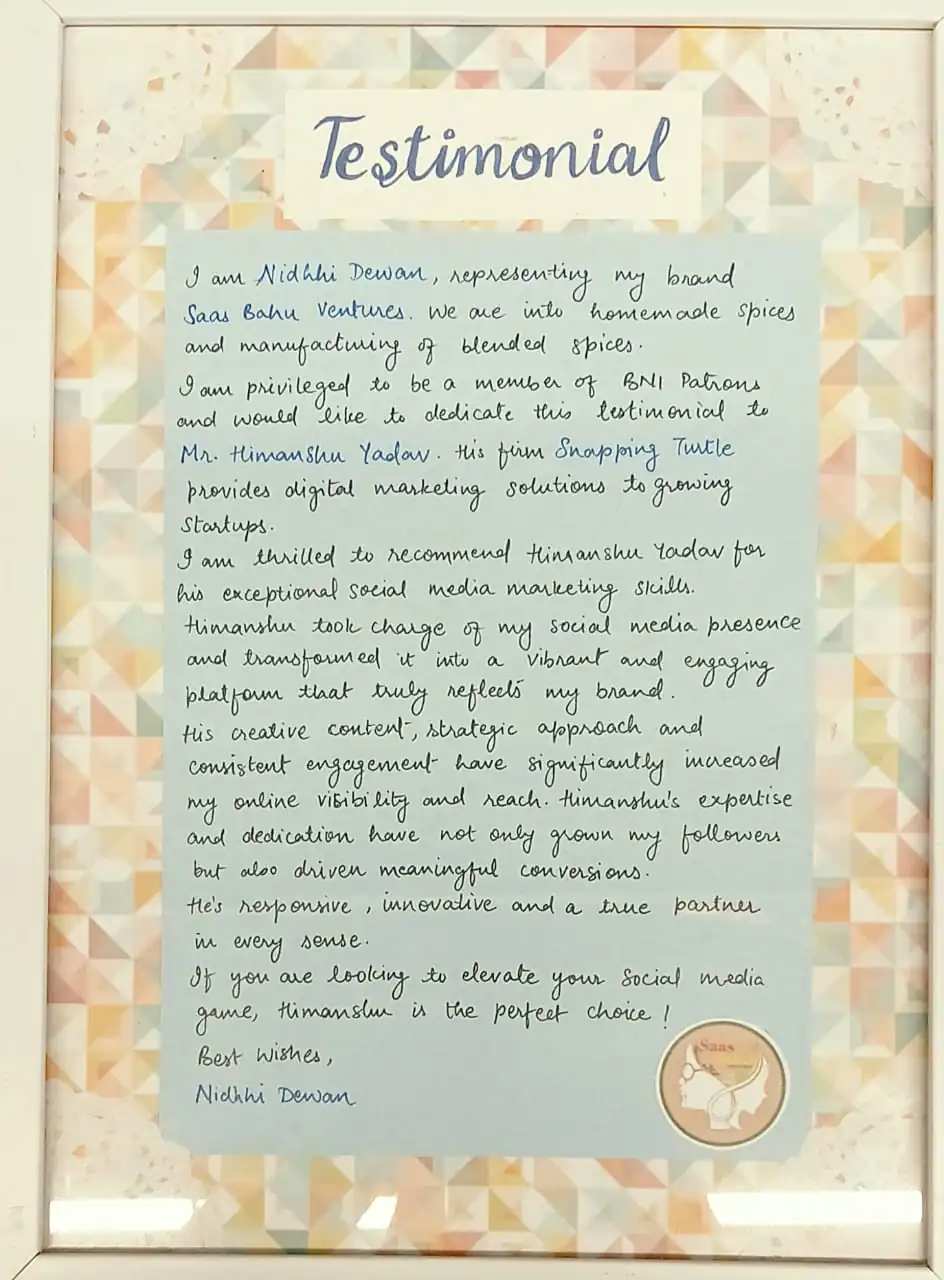 Testimonial
I am Nidhhi Dewan, representing my brand
Saas Bahu Ventures. We are into homemade spices
and manufacturing of blended spices.
I am privileged to be a member of BNI Patrons
and would like to dedicate this testimonial to
Mr. Himanshu Yadav. His firm Snapping Turtle
provides digital marketing solutions to growing
startups.
I am thrilled to recommend Himanshu Yadav for
his exceptional social media marketing skills.
Himanshu took charge of my social media presence
and transformed it into a vibrant and engaging
platform that truly reflects my brand.
His creative content, strategic approach and
consistent engagement have significantly increased
my online visibility and reach. Himanshu's expertise
and dedication have not only grown my followers
but also driven meaningful conversions.
He's responsive, innovative and a true partner
in every sense.
If you are looking to elevate your social media
game, Himanshu is the perfect choice!
Best Wishes,
Nidhhi Dewan
Saas